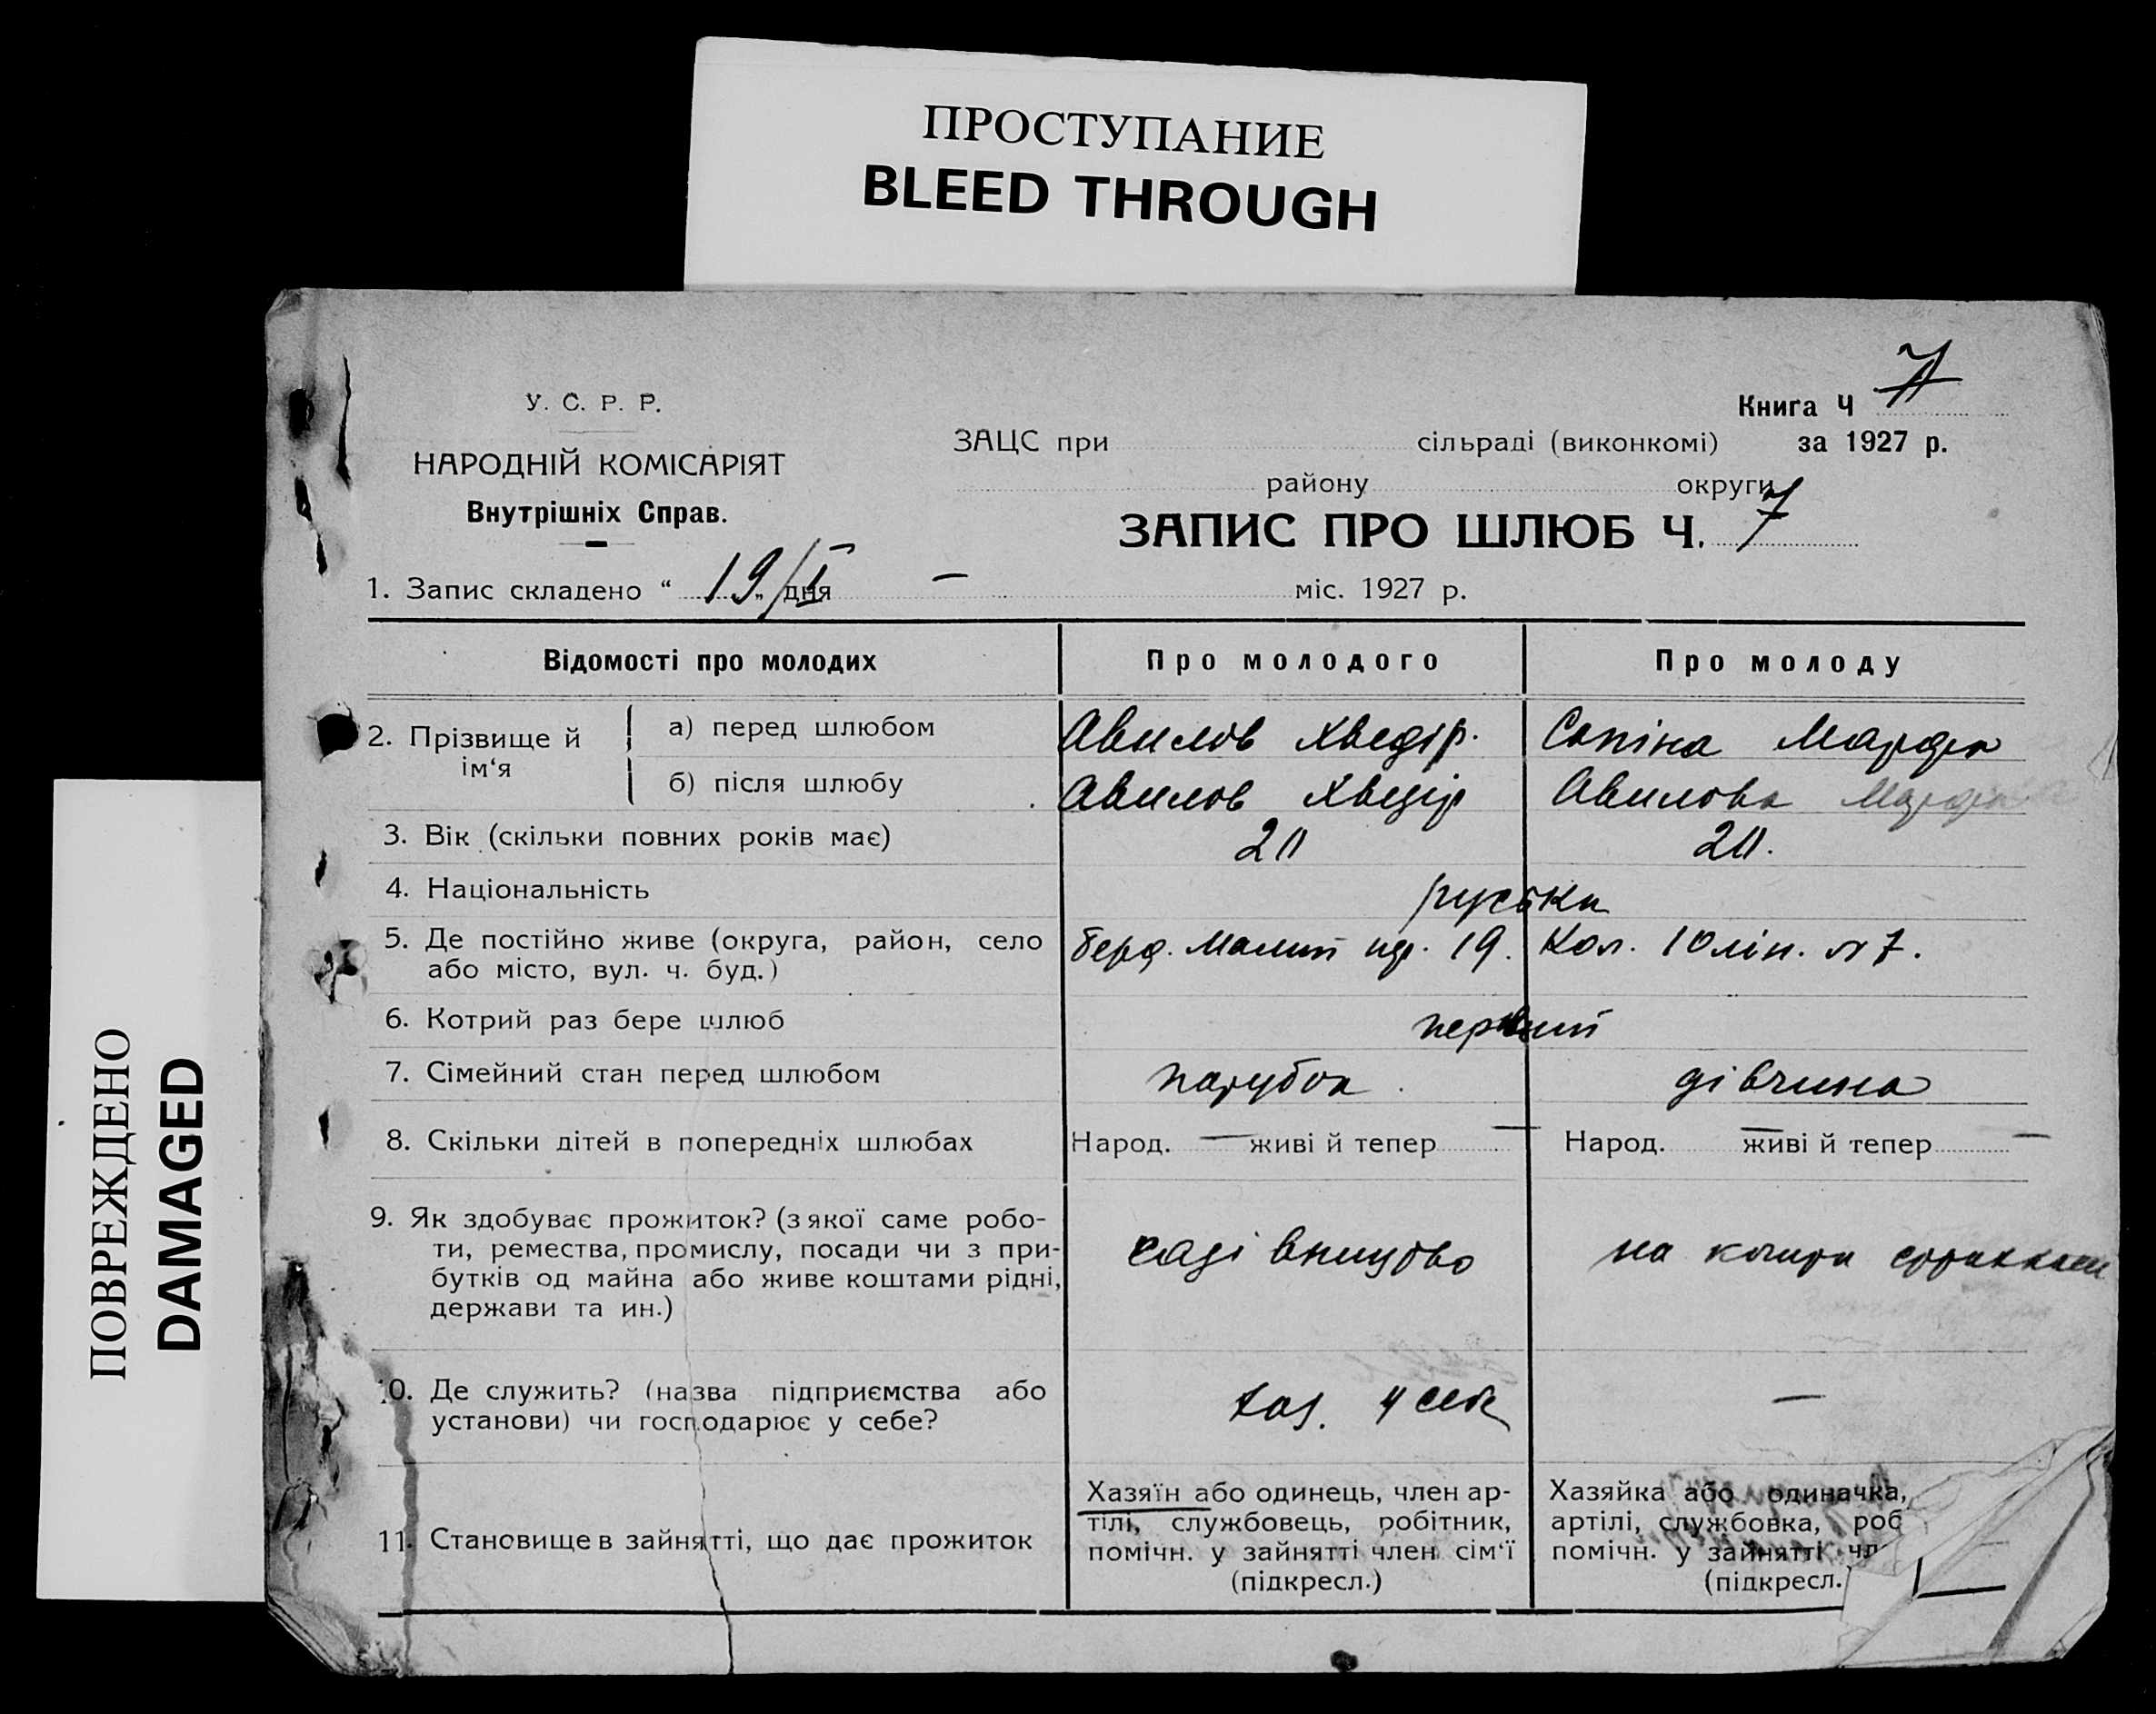 ПРОСТУПАНИЕ
BLEED THROUGH
ПОВРЕЖДЕНО
DAMAGED
У. С. Р. Р.
НАРОДНІЙ КОМІСАРІЯТ
Внутрішніх Справ.
Книга Ч 7
ЗАЦС при сільраді (виконкомі) за 1927 р.
району округи
ЗАПИС ПРО ШЛЮБ Ч. 7
1. Запис складено “ 19/I „ дня — міс. 1927 р.
Відомості про молодих Про молодого Про молоду
2. Прізвище й ім‘я
а) перед шлюбом Авилов Хведір. Сапіна Марфа
б) після шлюбу Авилов Хведір Авилова Марфа
3. Вік (скільки повних років має) 20 20.
4. Національність руські
5. Де постійно живе (округа, район, село Берд. Малий пр. 19. Кол. 10 лін. № 7.
або місто, вул. ч. буд.)
6. Котрий раз бере шлюб первий
7. Сімейний стан перед шлюбом парубок. дівчина
8. Скільки дітей в попередніх шлюбах Народ. — живі й тепер — Народ. — живі й тепер —
9. Як здобуває прожиток? (з якої саме робо-
ти, ремества, промислу, посади чи з при- садівництво на кошти
бутків од майна або живе коштами рідні,
держави та ин.)
10. Де служить? (назва підприємства або у себе —
установи) чи господарює у себе?
11. Становище в зайнятті, що дає прожиток
Хазяїн або одинець, член ар-
тілі, службовець, робітник,
помічн. у зайнятті член сім‘ї
(підкресл.)
Хазяйка або одиначка,
артілі, службовка, роб
помічн. у зайнятті чл
(підкресл.